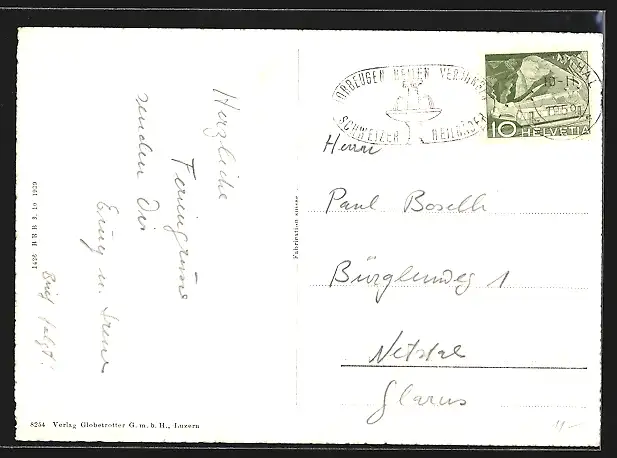 Herzliche
Feriengrüsse
senden Dir
Brief folgt!
1426 BRB 3. 10 1929
8254 Verlag Globetrotter G. m. b. H., Luzern
Fabrication suisse
VORBEUGEN HEILEN
SCHWEIZER HEILBÄDER
1959
10 HELVETIA
Herrn
Paul Boselli
Bürglenweg 1
Netstal
Glarus